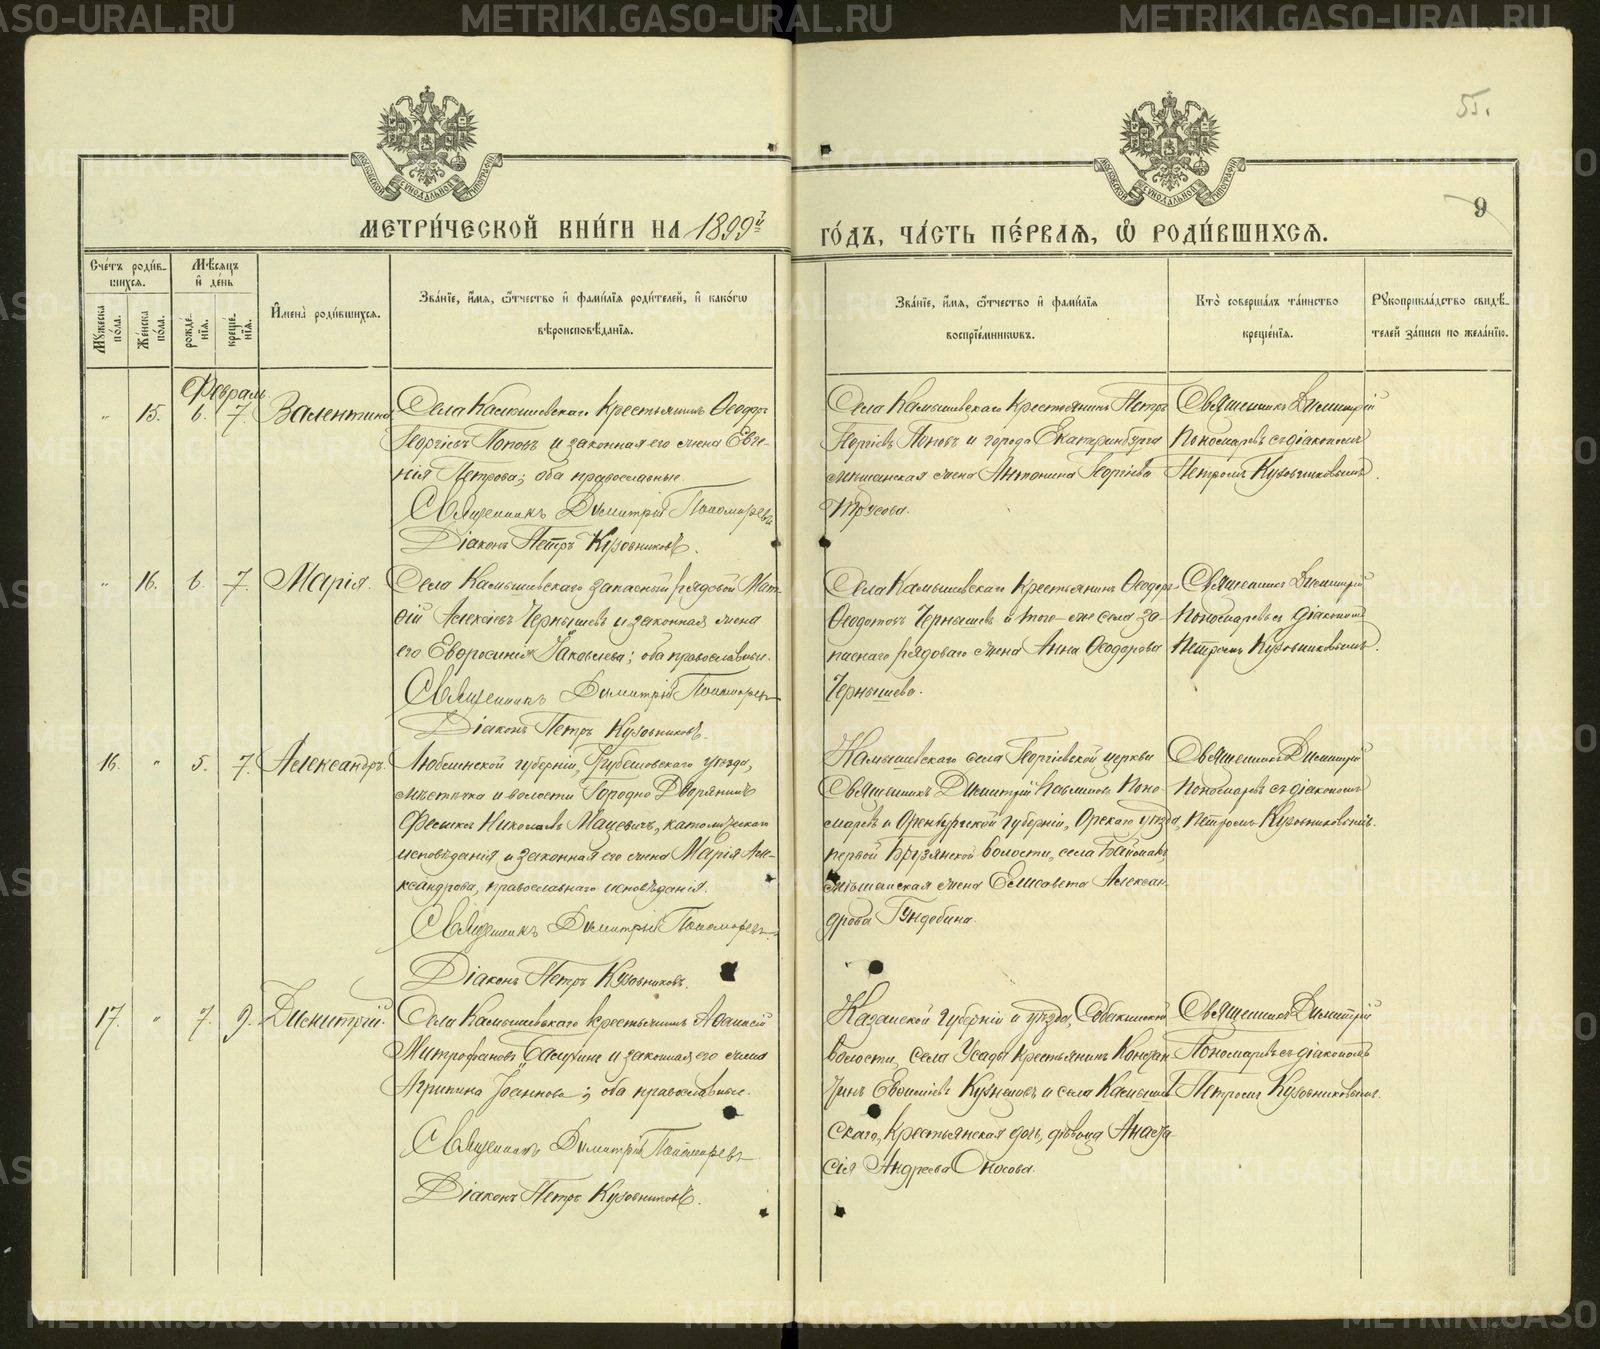 55.
9
МЕТРИ́ЧЕСКОЙ КНИ́ГИ НА 1899й
ГО́ДЪ, ЧА́СТЬ ПЕ́РВАЯ, Ѡ РОДИ́ВШИХСЯ.
Счéтъ роди́в-
шихся.
Мѣ́сяцъ
и҆ де́нь
Мꙋ́жеска по́ла.
Же́нска по́ла.
рожде́-нїя.
креще́-нїя.
И҆мена̀ роди́вшихся.
Зва́нїе, и҆́мя, ѻ҆́тчество и҆ фами́лїя роди́телей, и҆ како́гѡ
вѣроисповѣ́данїя.
Зва́нїе, и҆́мя, ѻ҆́тчество и҆ фами́лїя
воспрїе́мникѡвъ.
Кто̀ соверша́лъ та́инство
креще́нїя.
Рꙋкоприкла́дство свидѣ́-
телей за́писи по жела́нїю.
Февраль
" 15. 6. 7. Валентина
Села Камышевскаго крестьянинъ Ѳеодоръ
Георгіевъ Поповъ и законная его жена Евге-
нія Петрова; оба православные.
Священникъ Димитрій Пономаревъ
Діаконъ Петръ Кузовниковъ.
Села Камышевскаго крестьянинъ Петръ
Георгіевъ Поповъ и города Екатеринбурга
мѣщанская жена Антонина Георгіева
Трусова.
Священникъ Димитрій
Пономаревъ съ діакономъ
Петромъ Кузовниковымъ.
" 16. 6. 7. Марія.
Села Камышевскаго запасный рядовой Мат-
ѳій Алексіевъ Чернышевъ и законная жена
его Евфросинія Іаковлева; оба православные.
Священникъ Димитрій Пономаревъ
Діаконъ Петръ Кузовниковъ.
Села Камышевскаго крестьянинъ Ѳеодоръ
Ѳеодотовъ Чернышевъ и того-же села за-
паснаго рядоваго жена Анна Ѳеодорова
Чернышева.
Священникъ Димитрій
Пономаревъ съ діакономъ
Петромъ Кузовниковымъ.
16. " 5. 7. Александръ.
Люблинской губерніи, Грубешовскаго уѣзда,
мѣстечка и волости Городно Дворянинъ
Феликсъ Николаевъ Мацевичъ, католическаго
исповѣданія и законная его жена Марія Але-
ксандрова, православнаго исповѣданія.
Священникъ Димитрій Пономаревъ.
Діаконъ Петръ Кузовниковъ.
Камышевскаго села Георгіевской церкви
Священникъ Димитрій Павлиновъ Поно-
маревъ и Оренбургской губерніи, Орскаго уѣзда,
первой Бурзянской волости, села Баймакъ
мѣщанская жена Елисавета Алексан-
дрова Гундобина.
Священникъ Димитрій
Пономаревъ съ діакономъ
Петромъ Кузовниковымъ.
17. " 7. 9. Димитрій.
Села Камышевскаго крестьянинъ Аѳанасій
Митрофановъ и законная его жена
Агрипина Іоаннова; оба православные.
Священникъ Димитрій Пономаревъ
Діаконъ Петръ Кузовниковъ.
Казанской губерніи и уѣзда, Собакинской
волости, села Усады крестьянинъ Констан-
тинъ Евѳиміевъ Кузнецовъ и села Камышев-
скаго, крестьянская дочь, дѣвица Анаста-
сія Андреева Оносова.
Священникъ Димитрій
Пономаревъ съ діакономъ
Петромъ Кузовниковымъ.